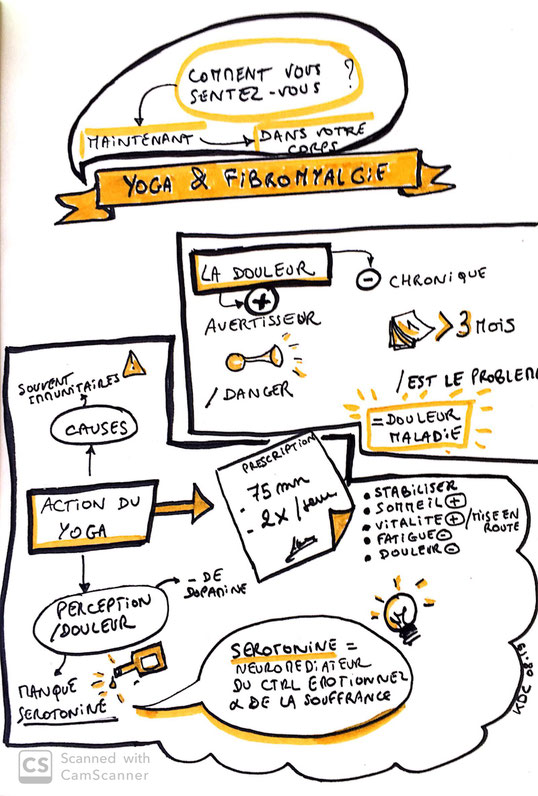 COMMENT VOUS
SENTEZ-VOUS ?
MAINTENANT
DANS VOTRE
CORPS
YOGA & FIBROMYALGIE
LA DOULEUR
+
AVERTISSEUR
/DANGER
-
CHRONIQUE
> 3 MOIS
/EST LE PROBLEM
= DOULEUR
MALADIE
SOUVENT
IMMUNITAIRES
!
CAUSES
ACTION DU
YOGA
PRESCRIPTION
- 75 mn
- 2X/sem
• STABILISER
• SOMMEIL +
• VITALITE + /MISE EN
ROUTE
• FATIGUE -
• DOULEUR -
PERCEPTION
/DOULEUR
- DE
DOPAMINE
MANQUE
SEROTONINE
SEROTONINE =
NEUROMEDIATEUR
DU CTRL EMOTIONNEL
& DE LA SOUFFRANCE
KDC 08.19
CS Scanned with
CamScanner